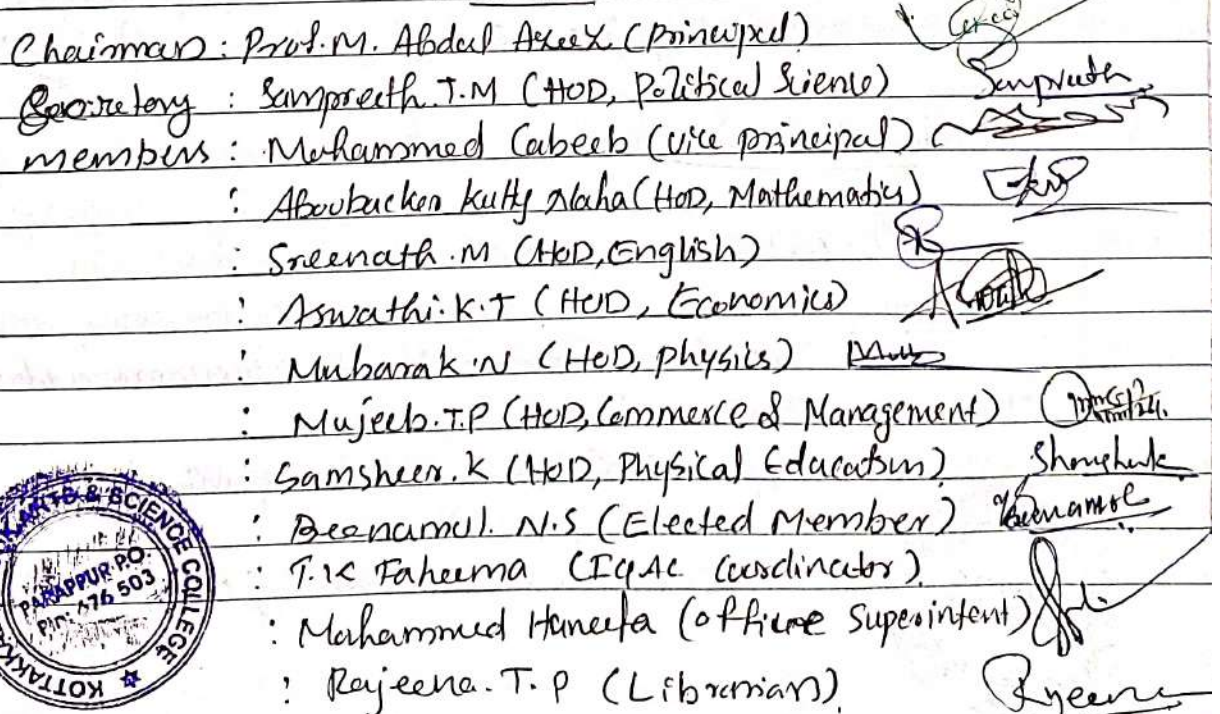 Chairman : Prof. M. Abdul Azeez (Principal)
Secretary : Sampreeth. T.M (HOD, Political Science) Sampreeth
members : Mohammed Cabeeb (Vice principal)
: Aboubacker Kutty Naha (HOD, Mathematics)
: Sreenath. M (HOD, English)
: Aswathi. K.T (HOD, Economics)
: Mubarak. N (HOD, physics)
: Mujeeb. T.P (HOD, Commerce & Management)
: Samsheer. K (HOD, Physical Education)
: Beenamol. N.S (Elected Member) Beenamol
: T.K Faheema (IQAC Coordinator)
: Mohammed Haneefa (office Superintent)
: Rajeena. T. P (Librarian) Rajeena
ARTS & SCIENCE COLLEGE
PARAPPUR P.O
Pin: 676 503